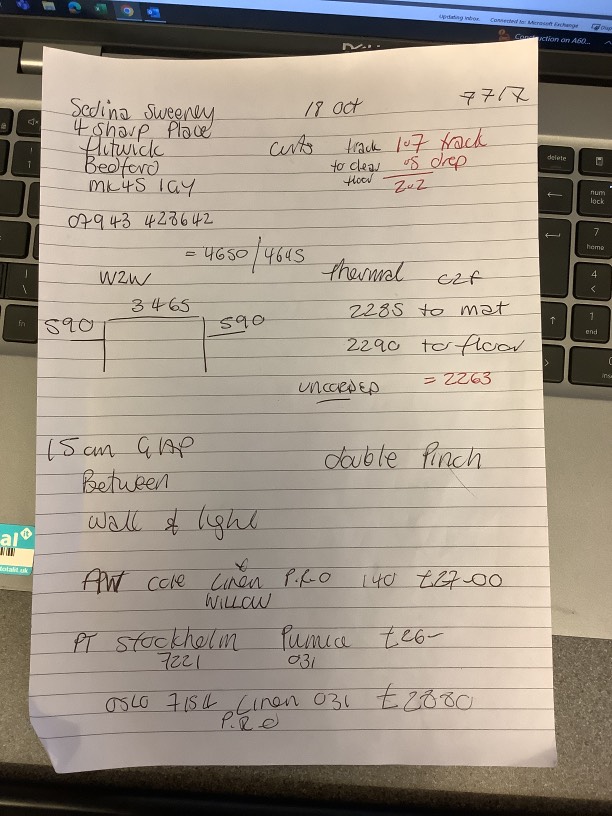 18 Oct
7717
Sedina Sweeney
4 Sharp Place
flitwick
Bedford
MK45 1GY
07943 428642
curts track 107 track
to clear 05 drop
floor 202
= 4650/4645
W2W
3465
590 590
thermal c2f
2285 to mat
2290 to floor
UNCORDED = 2263
15cm GAP
Between
wall & light
double Pinch
AW core Linen P.R.O 140 £27-00
WILLOW
PT Stockholm Pumice £26-
7221 031
OSLO 7154 Linen 031 £2880
P.R.O
Updating inbox. Connected to: Microsoft Exchange
Construction on A60...
delete
num
lock
7
home
4
1
end
fn